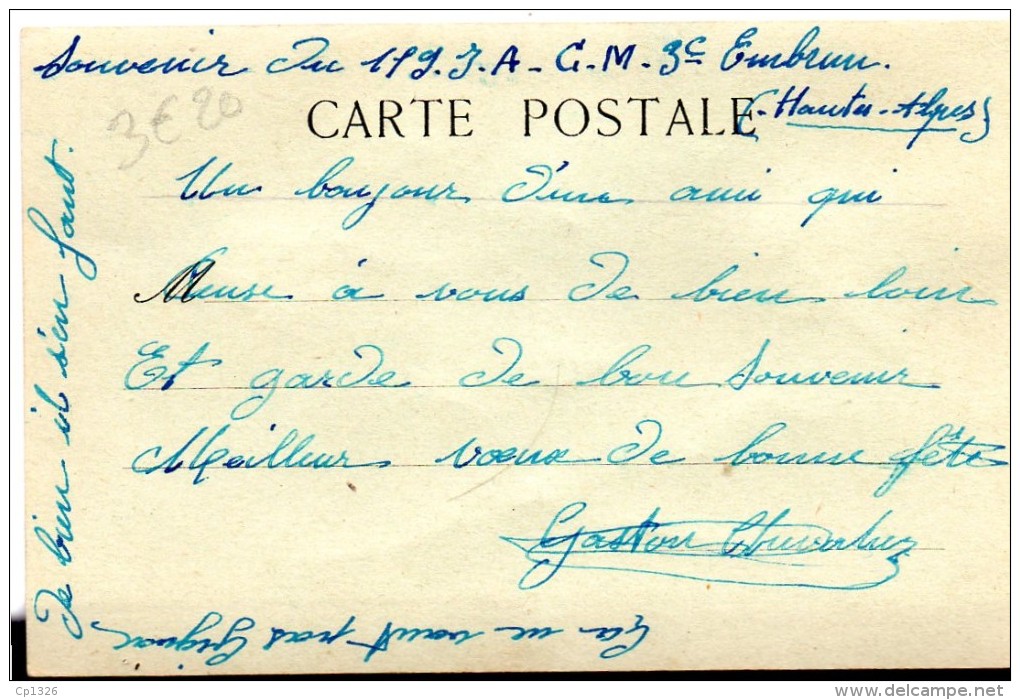 Souvenir du 159. I. A - C. M. 3c Embrun.
(Hautes-Alpes)
3€20
CARTE POSTALE
Un bonjour d'un ami qui
Pense à vous de bien loin
Et garde de bon souvenir
Meilleur vœux de bonne fête
Gaston
Ça ne vaut pas Gignac.
De bien il s'en faut.
Cp1326
www.delcampe.net